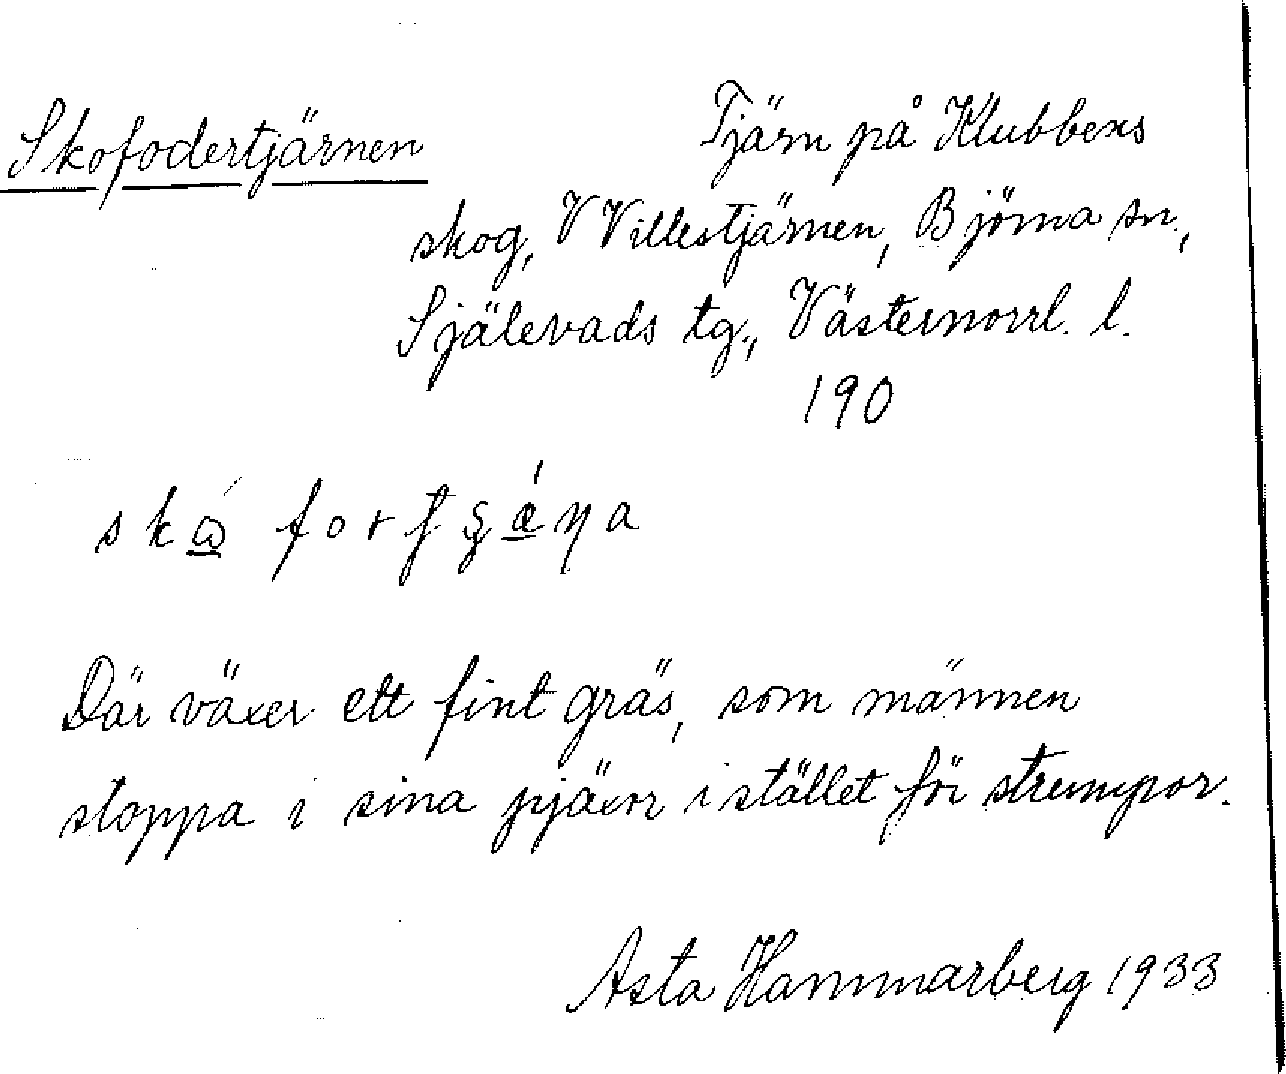 Skofodertjärnen
Tjärn på Klubbens
skog, V Villestjärnen, Björna sn.,
Själevads tg., Västernorrl. l.
190
Där växer ett fint gräs, som männen
stoppa i sina pjäxor i stället för strumpor.
Asta Hammarberg 1933